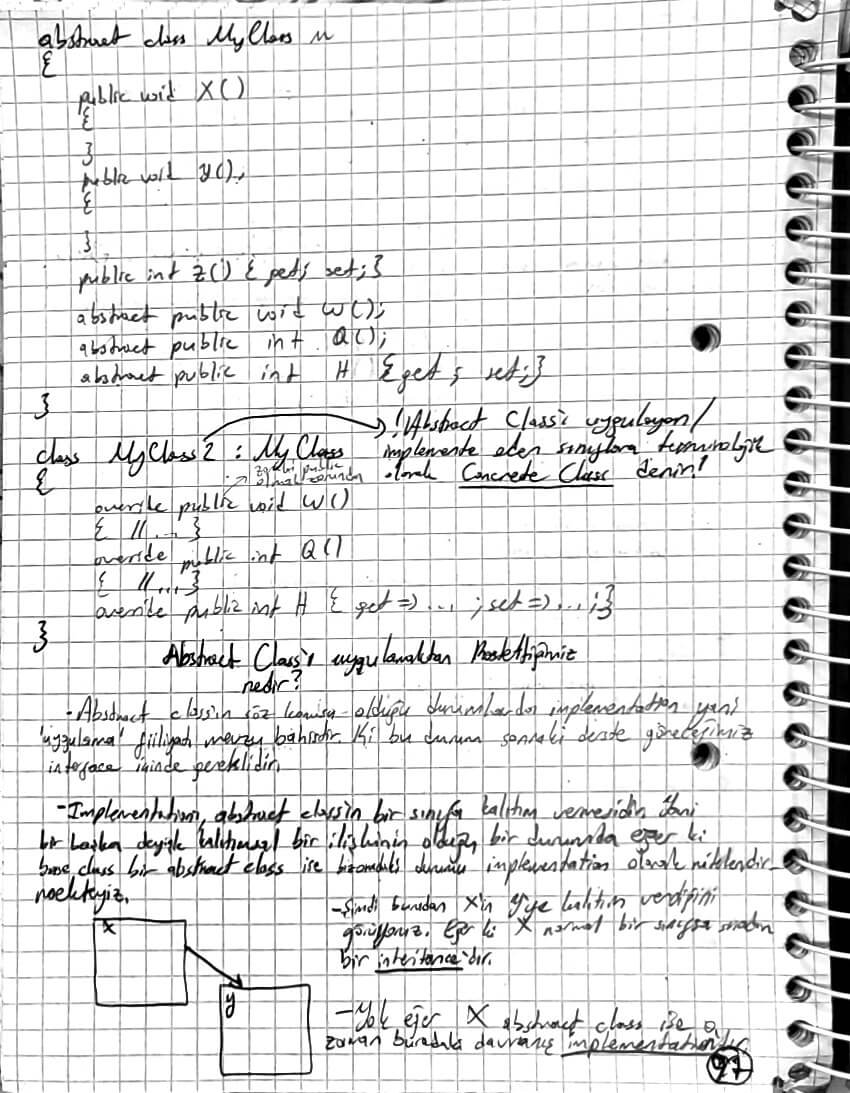 abstract class MyClass
{
public void X()
{
}
public void Y();
{
}
public int Z() { get; set; }
abstract public void W();
abstract public int Q();
abstract public int H { get ; set; }
}
class MyClass2 : MyClass
! Abstract Class'ı uygulayan/
implemente eden sınıflara terminolojik
olarak Concrete Class denir!
{
public
olmak zorunda
override public void W()
{ //... }
override public int Q()
{ //... }
override public int H { get => ... ; set => ... ; }
}
Abstract Class'ı uygulamaktan Kastettiğimiz
nedir?
- Abstract class'ın söz konusu olduğu durumlarda implementation yani
'uygulama' fiiliyatı mevzu bahistir. Ki bu durum sonraki derste göreceğimiz
interface içinde gereklidir.
- Implementation, abstract class'ın bir sınıfa kalıtım vermesidir. Yani
bir başka deyişle kalıtımsal bir ilişkinin olduğu bir durumda eğer ki
base class bir abstract class ise buradaki durumu implementation olarak nitelendir-
mekteyiz.
X
Y
- Şimdi buradan X'in Y'ye kalıtım verdiğini
görüyoruz. Eğer ki X normal bir sınıfsa sıradan
bir inheritance'dır.
- Yok eğer X abstract class ise o
zaman buradaki davranış implementation'dır.
97